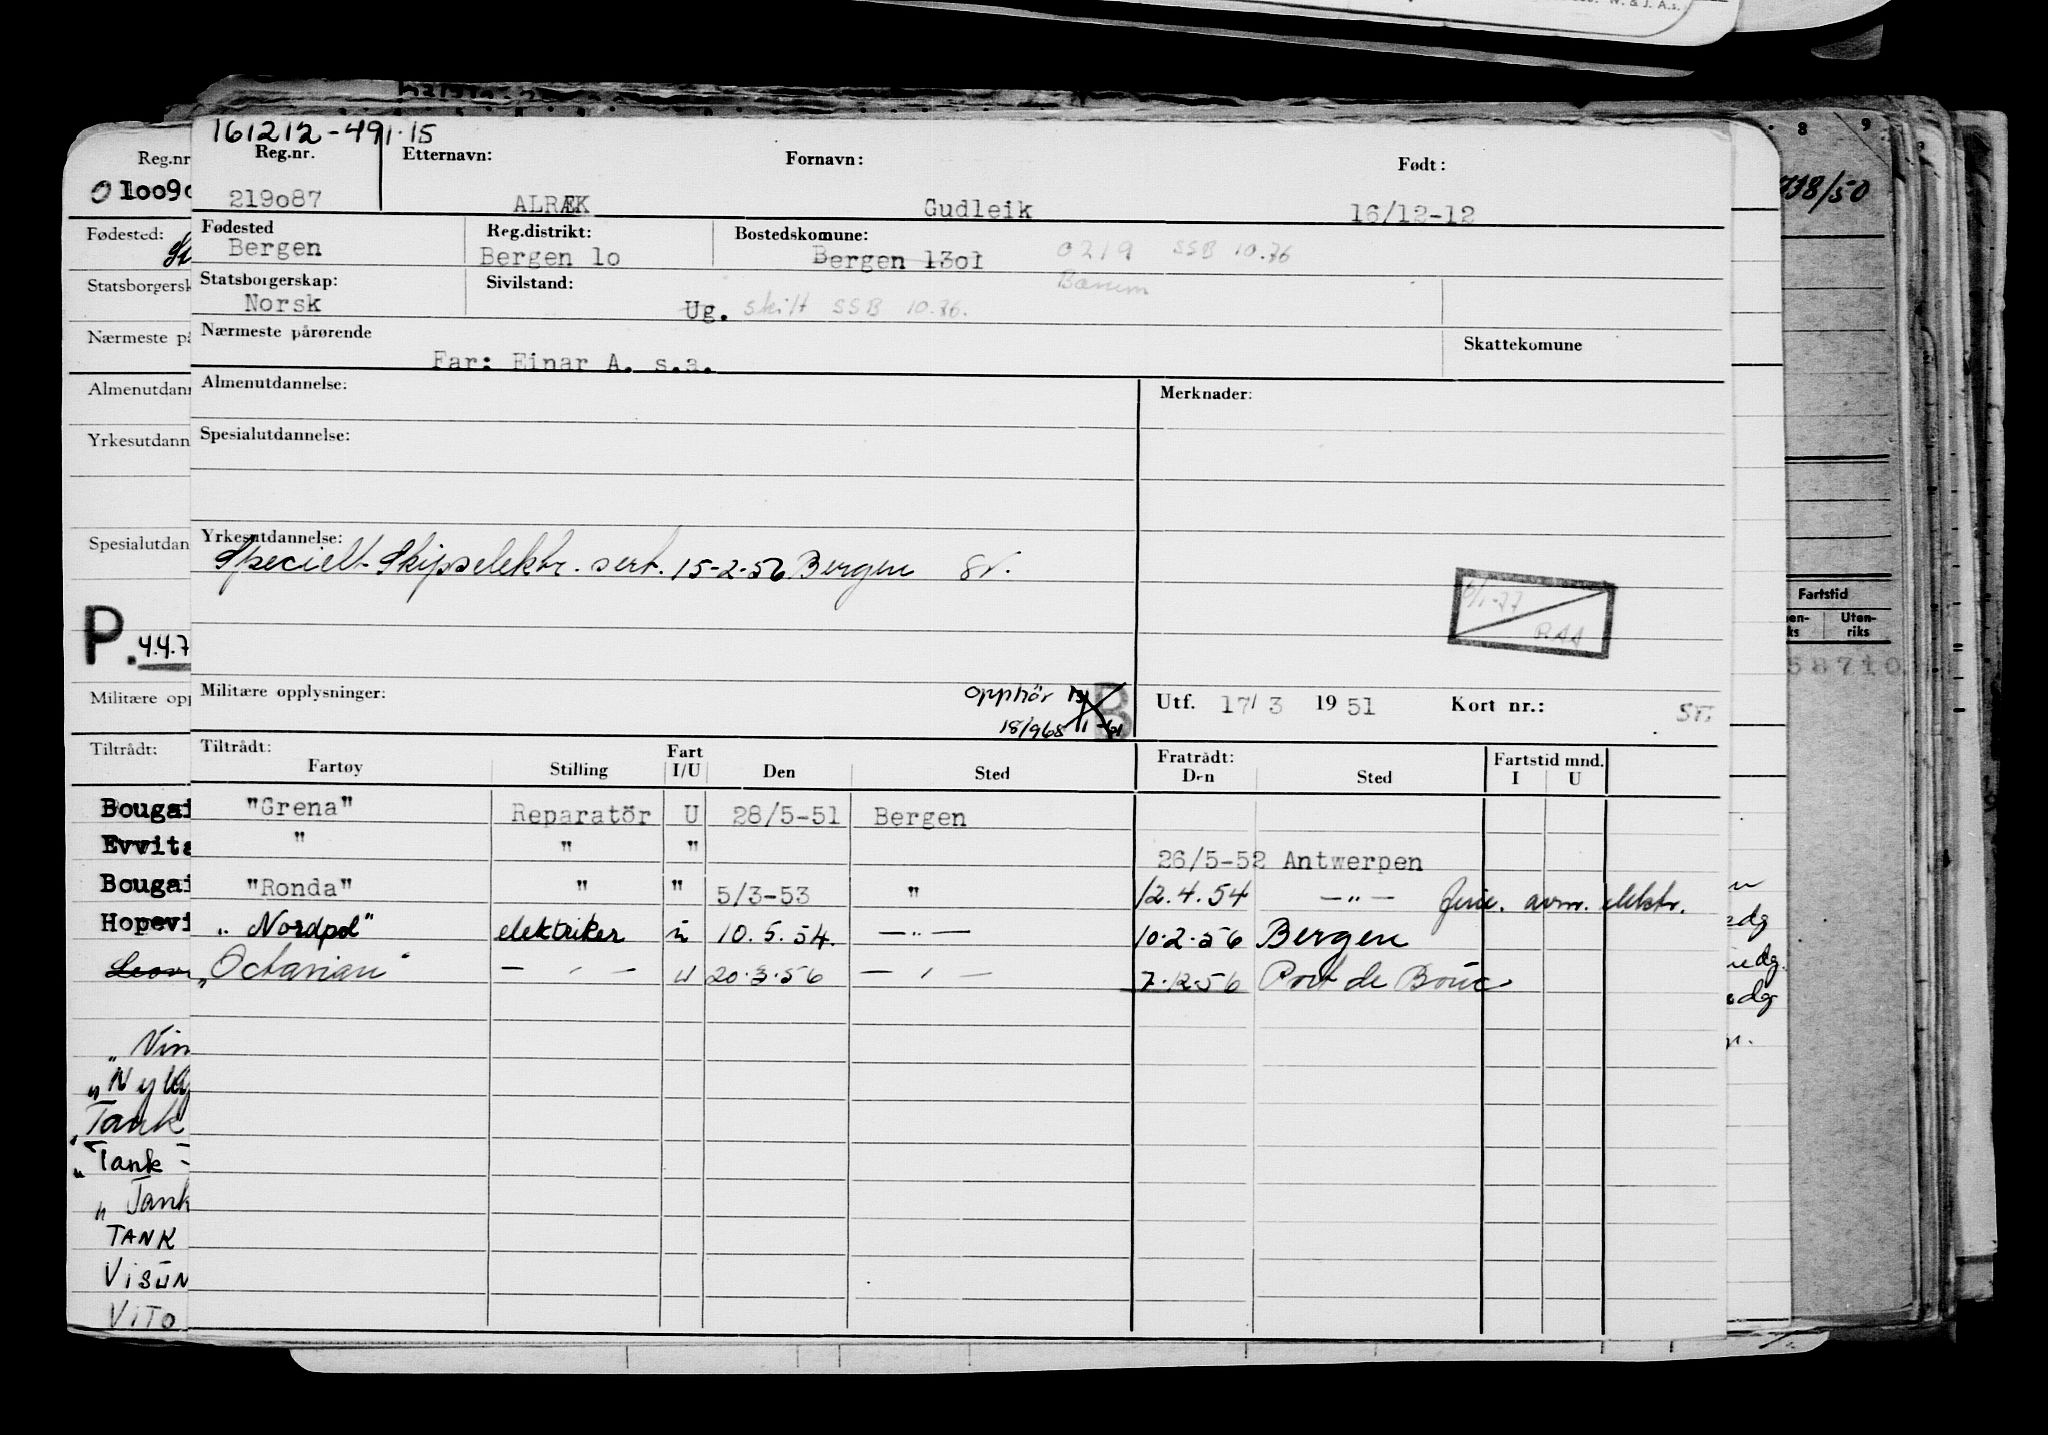 W. & J. A.s.
161212-491·15
Reg.nr. Etternavn: Fornavn: Født:
219o87 ALRÆK Gudleik 16/12-12
Fødested Reg.distrikt: Bostedskomune:
Bergen Bergen 1o Bergen 13o1 0219 SSB 10.76
Bærum
Statsborgerskap: Sivilstand:
Norsk Ug. skilt SSB 10.76.
Nærmeste pårørende Skattekomune
Far: Einar A. s.a.
Almenutdannelse: Merknader:
Spesialutdannelse:
Yrkesutdannelse:
Specielt Skipselektr. sert. 15-2-56 Bergen
Militære opplysninger: opphör Utf. 17/3 1951 Kort nr.:
18/968
Tiltrådt: Fratrådt:
Fartøy Stilling Fart I/U Den Sted Den Sted Fartstid mnd. I U
"Grena" Reparatör U 28/5-51 Bergen
" " " 26/5-52 Antwerpen
"Ronda" " " 5/3-53 " 12.4.54 —"— avm. elektr.
„Nordpol" elektriker u 10.5.54. —"— 10.2.56 Bergen
„Octavian" — ' — u 20.3.56 — ' — 7.12.56 Port de Bouc
Reg.nr
0 1oo9o
Fødested:
Statsborgersk
Nærmeste på
Almenutdann
Yrkesutdann
Spesialutdan
P. 4.4.7
Militære opp
Tiltrådt:
Bougai
Evvita
Bougai
Hopevi
„ Vin
Tank
„Tank -
„ Tank
TANK
VISUN
VITO
8 9
738/50
Fartstid
en-ks Uten-riks
58710